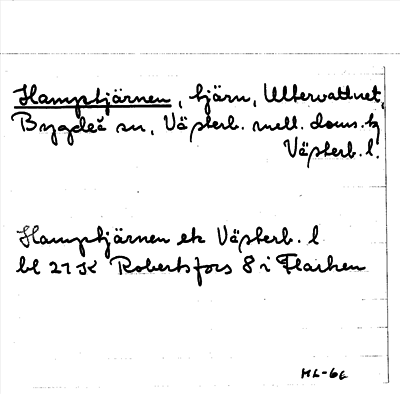 Hamptjärnen, tjärn, Ultervattnet,
Bygdeå sn, Västerb. mell. doms. tg
Västerb. l.
Hamptjärnen ek Västerb. l
bl 21 K Robertsfors 8 i Flarken
HL-66